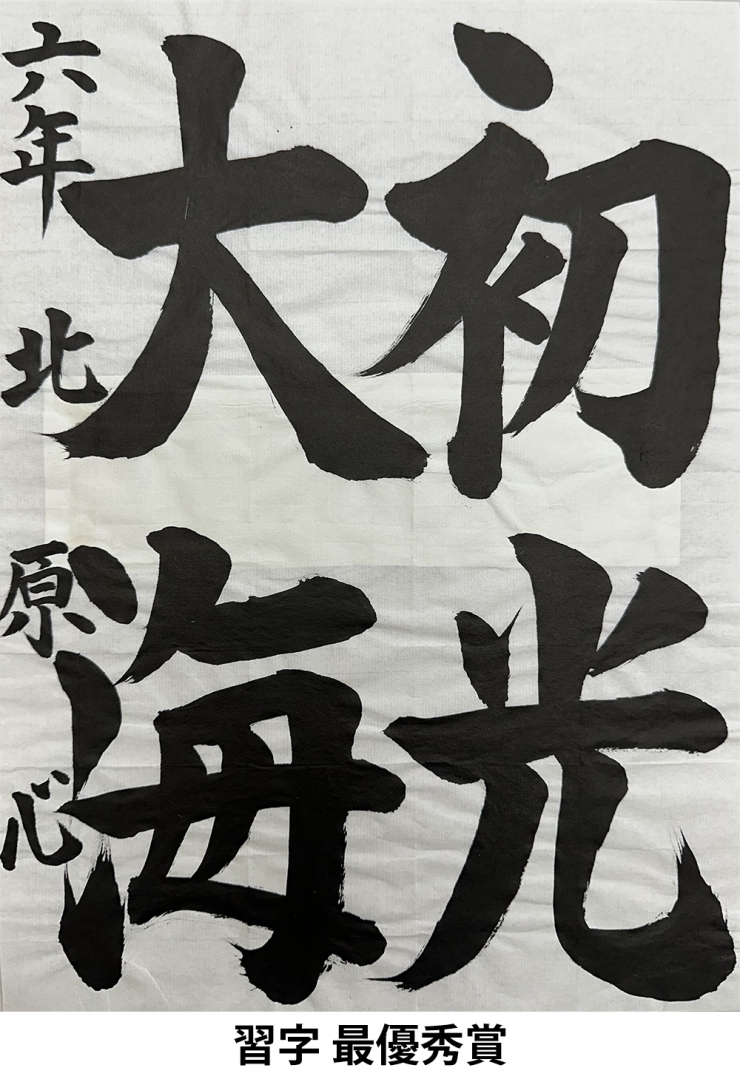 初光
大海
六年 北原 心
習字 最優秀賞